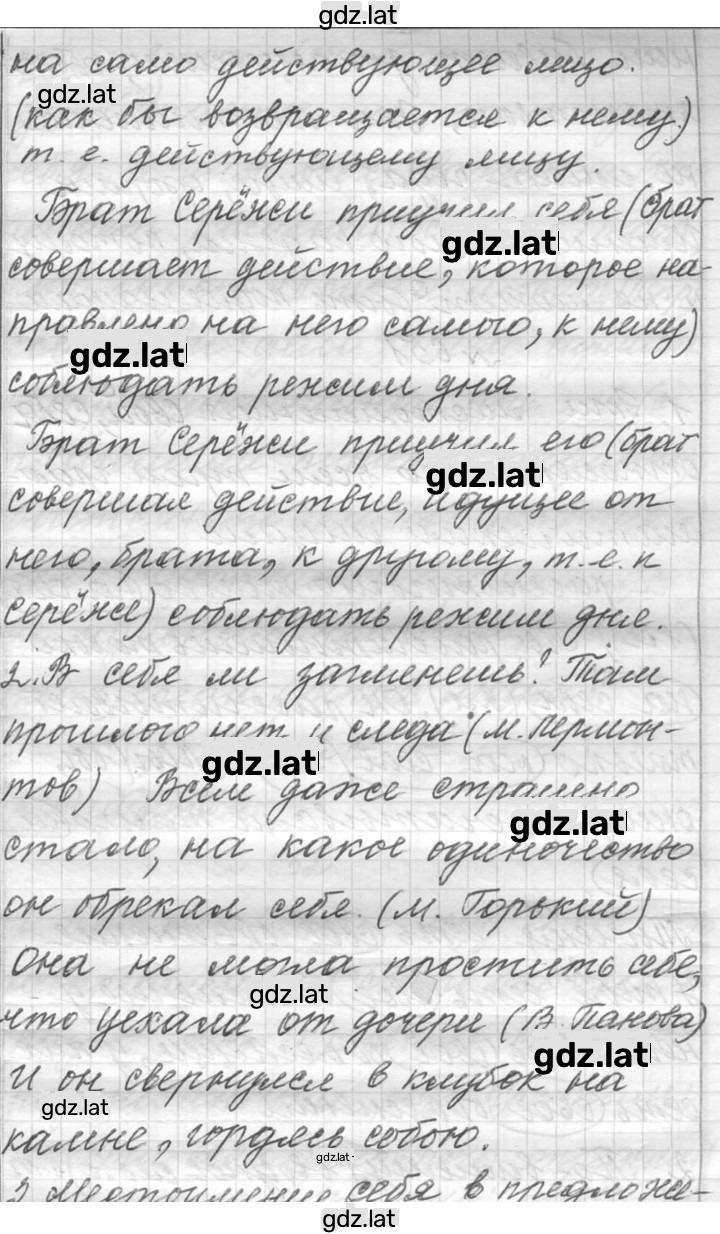 gdz.lat
на само действующее лицо.
gdz.lat
(как бы возвращается к нему)
т. е. действующему лицу.
Брат Серёжи приучил себя (брат
gdz.lat
совершает действие, которое на-
правлено на него самого, к нему)
gdz.lat
соблюдать режим дня.
Брат Серёжи приучил его (брат
gdz.lat
совершал действие, идущее от
него, брата, к другому, т.е. к
Серёже) соблюдать режим дня.
2. В себя ли заглянешь? Там
прошлого нет и следа (М. Лермон-
gdz.lat
тов) Всем даже страшно
gdz.lat
стало, на какое одиночество
он обрекал себя. (М. Горький)
Она не могла простить себе,
gdz.lat
что уехала от дочери (В. Панова)
gdz.lat
И он свернулся в клубок на
gdz.lat
камне, гордясь собою.
gdz.lat
3 Местоимение себя в предложе-
gdz.lat